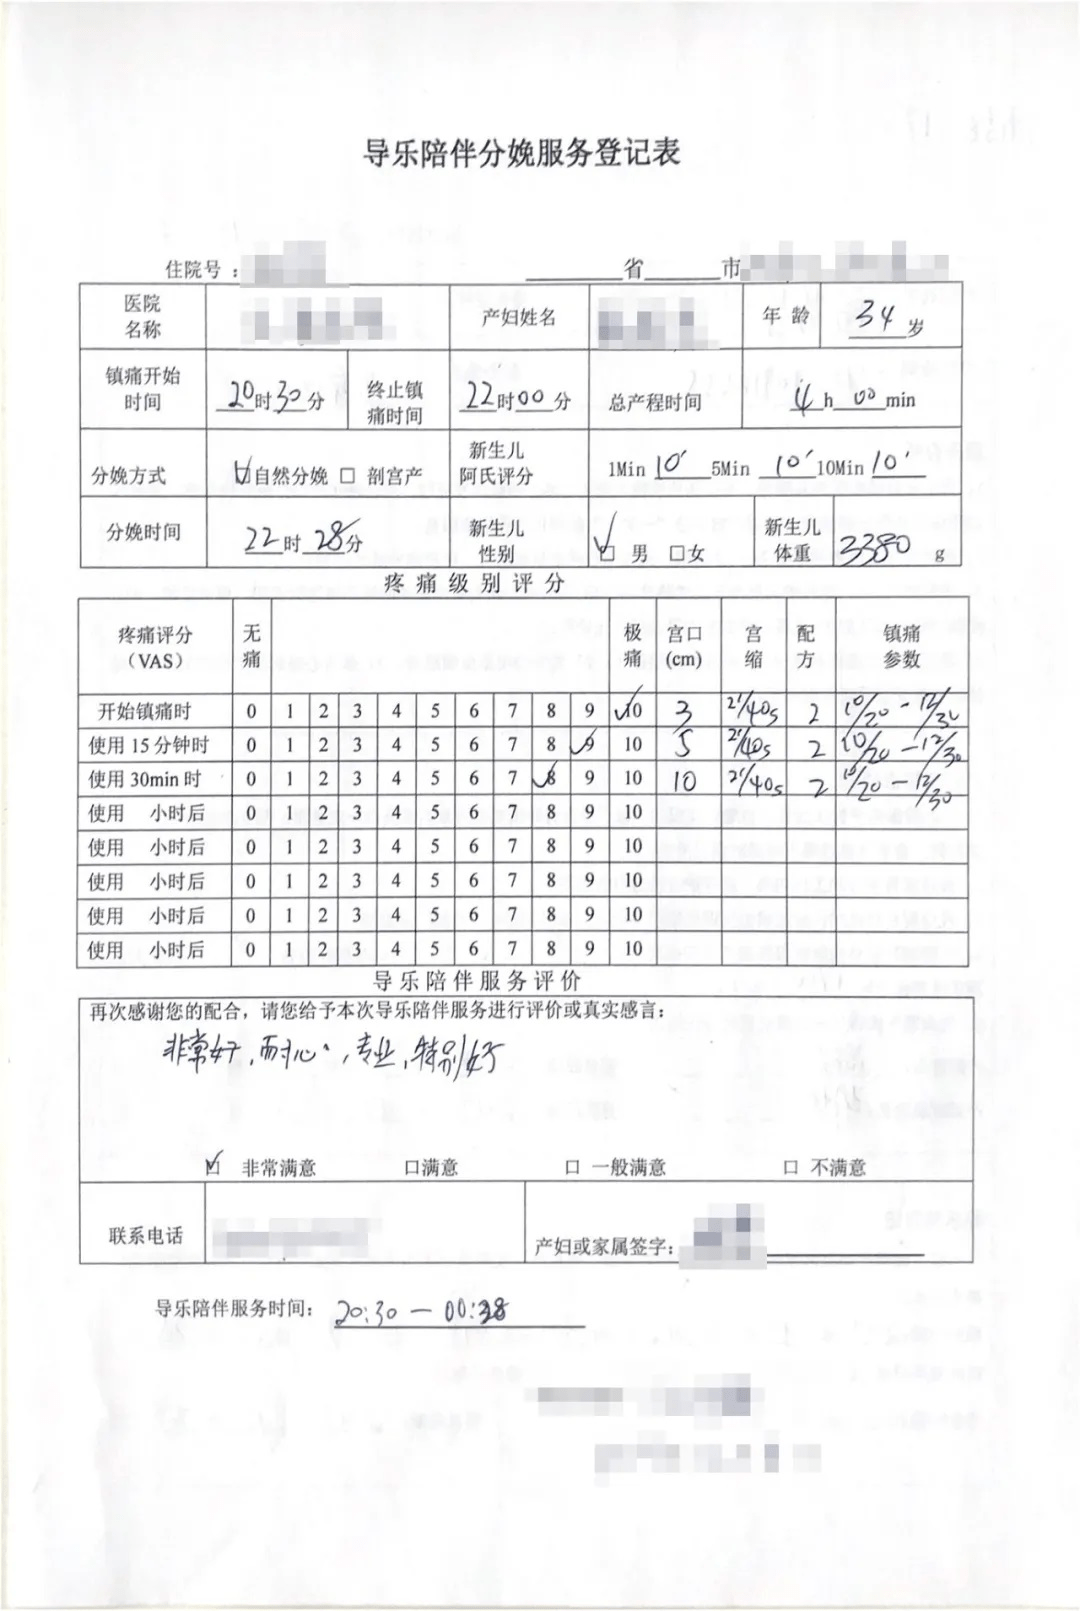 导乐陪伴分娩服务登记表
住院号： ____省____市
医院名称 产妇姓名 年龄 34岁
镇痛开始时间 20时30分 终止镇痛时间 22时00分 总产程时间 4h 00min
分娩方式 ☑自然分娩 □ 剖宫产 新生儿阿氏评分 1Min 10' 5Min 10' 10Min 10'
分娩时间 22时28分 新生儿性别 ☑ 男 □女 新生儿体重 3380 g
疼痛级别评分
疼痛评分（VAS） 无痛 极痛 宫口(cm) 宫缩 配方 镇痛参数
开始镇痛时 0 1 2 3 4 5 6 7 8 9 ✓10 3 2'/40s 2 10/20 - 12/30
使用 15 分钟时 0 1 2 3 4 5 6 7 8 ✓9 10 5 2'/40s 2 10/20 - 12/30
使用 30min 时 0 1 2 3 4 5 6 7 ✓8 9 10 10 2'/40s 2 10/20 - 12/30
使用 小时后 0 1 2 3 4 5 6 7 8 9 10
使用 小时后 0 1 2 3 4 5 6 7 8 9 10
使用 小时后 0 1 2 3 4 5 6 7 8 9 10
使用 小时后 0 1 2 3 4 5 6 7 8 9 10
使用 小时后 0 1 2 3 4 5 6 7 8 9 10
导乐陪伴服务评价
再次感谢您的配合，请您给予本次导乐陪伴服务进行评价或真实感言：
非常好，耐心，专业，特别好
☑ 非常满意 □满意 □ 一般满意 □ 不满意
联系电话 产妇或家属签字：
导乐陪伴服务时间： 20:30 — 00:28